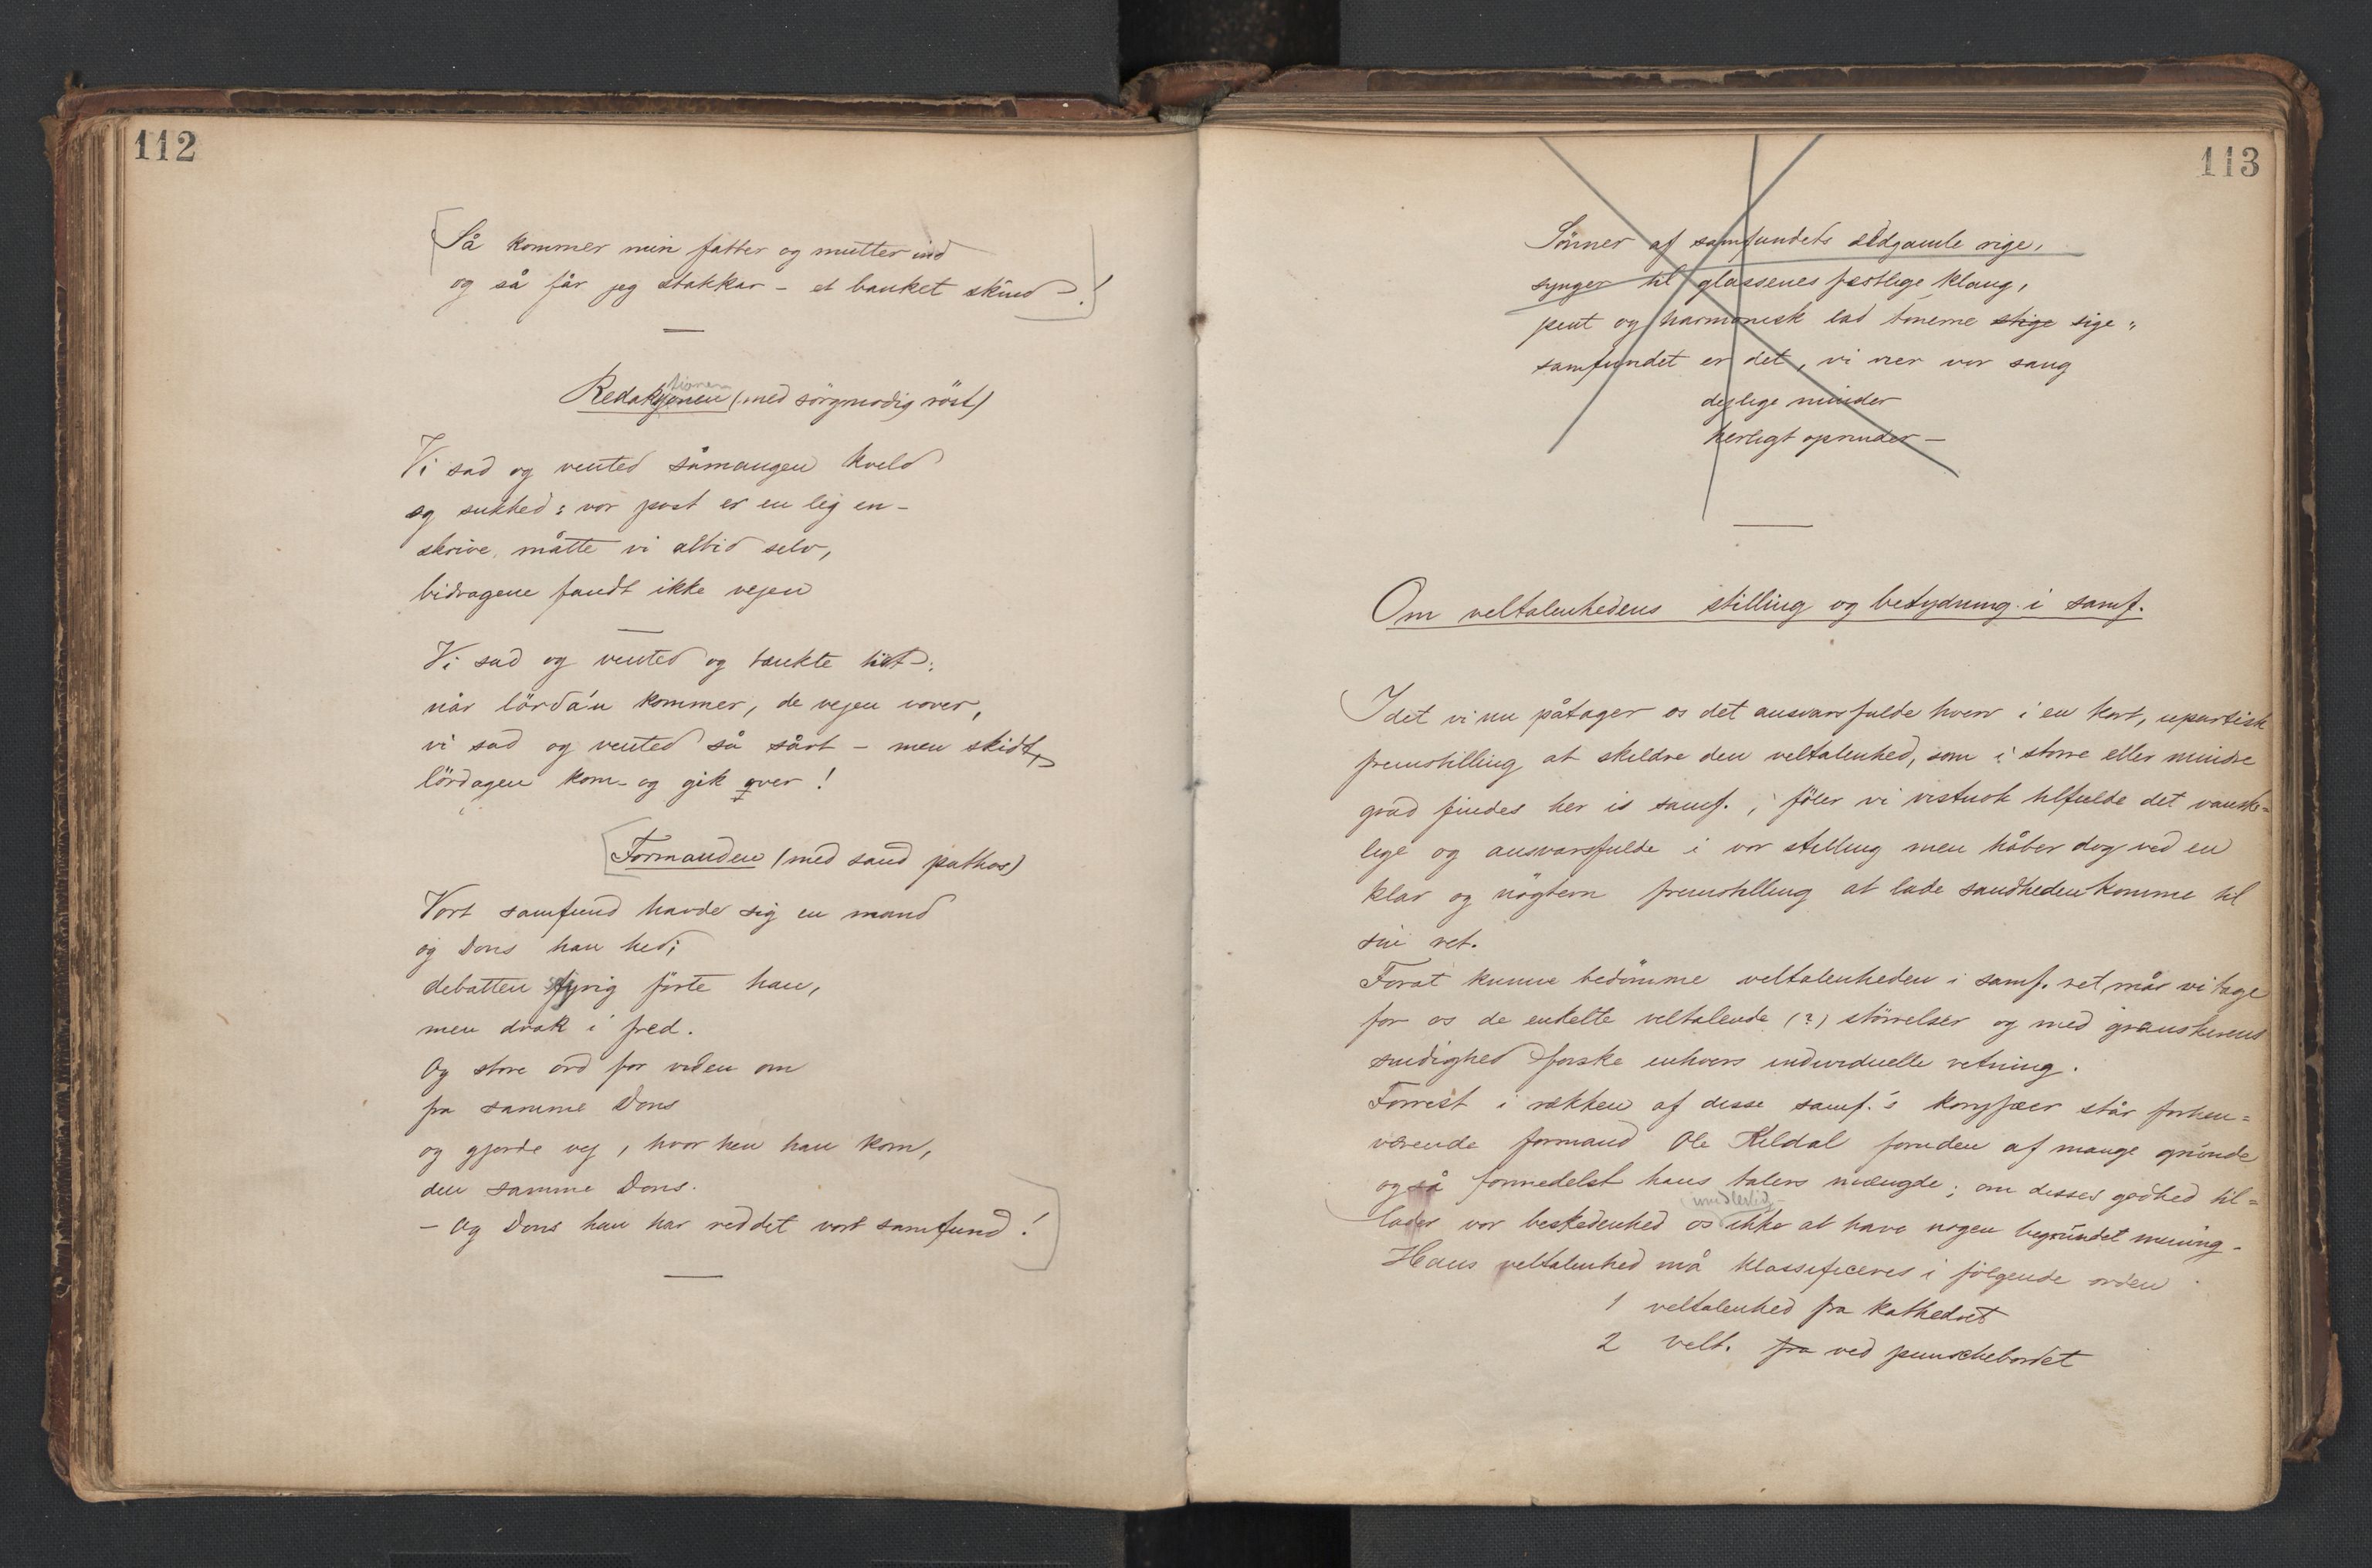 112
Så kommer min fatter og mutter ind
og så får jeg stakkar – et banket skind!
Redaktionen (med sörgmodig röst)
Vi sad og vented såmangen kveld
og sukked: vor post er en lej en –
skrive måtte vi altid selv,
bidragene fandt ikke vejen
Vi sad og vented og tænkte tidt:
når lörda'n kommer, de vejen vover,
vi sad og vented så sårt – men skidt,
lördagen kom og gik over!
Formanden (med sand pathos)
Vort samfund havde sig en mand
og Dons han hed;
debatten fyrig förte han,
men drak i fred.
Og store ord for viden om
fra samme Dons
og gjorde vej, hvor hen han kom,
den samme Dons.
– Og Dons han har reddet vort samfund!
113
Sönner af samfundets ældgamle rige,
synger til glassenes festlige klang,
pent og harmonisk lad tonerne stige sige:
samfundet er det, vi vier vor sang
dejlige minder
herligt oprinder –
Om veltalenhedens stilling og betydning i samf.
Idet vi nu påtager os det ansvarsfulde hverv i en kort, upartisk
fremstilling at skildre den veltalenhed, som i större eller mindre
grad findes her is samf., föler vi vistnok tilfulde det vanske=
lige og ansvarsfulde i vor stilling men håber dog ved en
klar og nögtern fremstilling at lade sandheden komme til
sin ret.
Forat kunne bedömme veltalenheden i samf. ret, må vi tage
for os de enkelte veltalende (?) störrelser og med granskerens
smidighed forske enhvers individuelle retning.
Forrest i rækken af disse samf.'s koryfæer står forhen=
værende formand Ole Kildal foruden af mange grunde
også formedelst hans talers mængde; om disses godhed til=
imidlertid
lader vor beskedenhed os ikke at have nogen begrundet mening.
Hans veltalenhed må klassificeres i fölgende orden
1 veltalenhed fra kathedret
2 velt. fra ved punschebordet